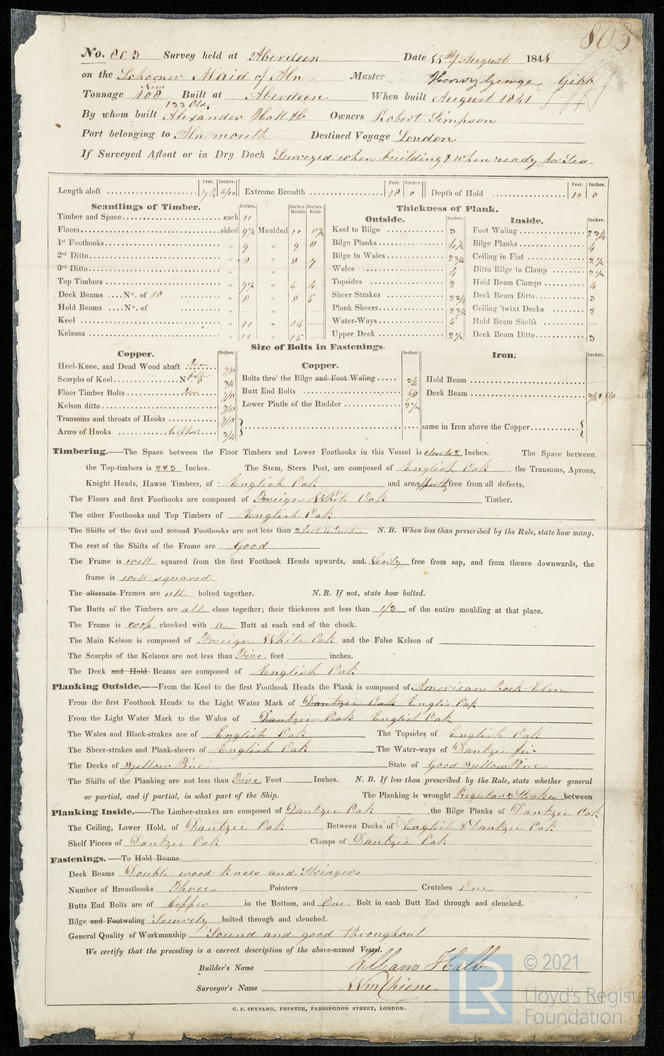 803
No. 803 Survey held at Aberdeen Date 11th August 1841
on the Schooner Maid of Aln Master Henry George Gibb
Tonnage New 108 Built at Aberdeen When built August 1841
133 Old
By whom built Alexander Hall & Co Owners Robert Simpson
Port belonging to Alnmouth Destined Voyage London
If Surveyed Afloat or in Dry Dock Surveyed when building & when ready for Sea
Feet. Inches. Feet. Inches. Feet. Inches.
Length aloft Extreme Breadth 18 0 Depth of Hold 10 0
Scantlings of Timber. Thickness of Plank.
Outside. Inside.
Timber and Space each 11
Floors sided 9½ Moulded 10
1st Foothooks " 9 " 9 8
2nd Ditto " 8 " 8 7
3rd Ditto
Top Timbers " 7½ " 6 4
Deck Beams No. of 18 " 8 " 8 5
Hold Beams No. of
Keel " 11 " 14
Kelsons " 11 " 15
Keel to Bilge 3
Bilge Planks 4½
Bilge to Wales 2¾
Wales 4
Topsides 3
Sheer Strakes 2¾
Plank Sheers 2¾
Water-Ways 5
Upper Deck 2½
Foot Waling 2¾
Bilge Planks 4
Ceiling in Flat 2½
Ditto Bilge to Clamp 2½
Hold Beam Clamps 4
Deck Beam Ditto 3
Ceiling 'twixt Decks 2
Hold Beam Shelfs
Deck Beam Ditto 3
Size of Bolts in Fastenings.
Copper. Copper. Iron.
Heel-Knee, and Dead Wood abaft Iron 7/10
Scarphs of Keel No. 3/4
Floor Timber Bolts Iron 7/10
Kelson ditto 7/10
Transoms and throats of Hooks 7/10
Arms of Hooks 3/4
Bolts thro' the Bilge and Foot Waling 3/4
Butt End Bolts 5/8
Lower Pintle of the Rudder 2½
Hold Beam
Deck Beam
same in Iron above the Copper
Timbering.—The Space between the Floor Timbers and Lower Foothooks in this Vessel is close to 2 Inches. The Space between
the Top-timbers is 2 & 3 Inches. The Stem, Stern Post, are composed of English Oak the Transoms, Aprons,
Knight Heads, Hawse Timbers, of English Oak and are apparently free from all defects.
The Floors and first Foothooks are composed of Foreign White Oak Timber.
The other Foothooks and Top Timbers of English Oak
The Shifts of the first and second Foothooks are not less than N. B. When less than prescribed by the Rule, state how many.
The rest of the Shifts of the Frame are Good
The Frame is well squared from the first Foothook Heads upwards, and nearly free from sap, and from thence downwards, the
frame is well squared
The alternate Frames are all bolted together. N. B. If not, state how bolted.
The Butts of the Timbers are all close together; their thickness not less than 1/3 of the entire moulding at that place.
The Frame is chocked with a Butt at each end of the chock.
The Main Kelson is composed of Foreign White Oak and the False Kelson of
The Scarphs of the Kelsons are not less than Five feet inches.
The Deck and Hold Beams are composed of English Oak
Planking Outside.—From the Keel to the first Foothook Heads the Plank is composed of American Rock Elm
From the first Foothook Heads to the Light Water Mark of Dantzic Oak English Oak
From the Light Water Mark to the Wales of Dantzic Oak English Oak
The Wales and Black-strakes are of English Oak The Topsides of English Oak
The Sheer-strakes and Plank-sheers of English Oak The Water-ways of Dantzic fir
The Decks of Yellow Pine State of Good Yellow Pine
The Shifts of the Planking are not less than Five Feet Inches. N. B. If less than prescribed by the Rule, state whether general
or partial, and if partial, in what part of the Ship. The Planking is wrought Regular 3 Strakes between
Planking Inside.—The Limber-strakes are composed of Dantzic Oak the Bilge Planks of Dantzic Oak
The Ceiling, Lower Hold, of Dantzic Oak Between Decks of English & Dantzic Oak
Shelf Pieces of Dantzic Oak Clamps of Dantzic Oak
Fastenings.—To Hold Beams
Deck Beams Double wood Knees and Stringers
Number of Breasthooks Three Pointers Crutches One
Butts End Bolts are of Copper in the Bottom, and One Bolt in each Butt End through and clenched.
Bilge and Footwaling Securely bolted through and clenched.
General Quality of Workmanship Sound and good throughout
We certify that the preceding is a correct description of the above-named Vessel.
Builder's Name William Hall
Surveyor's Name
C. F. SEYFANG, PRINTER, FARRINGDON STREET, LONDON.
LR © 2021
Lloyd's Register
Foundation